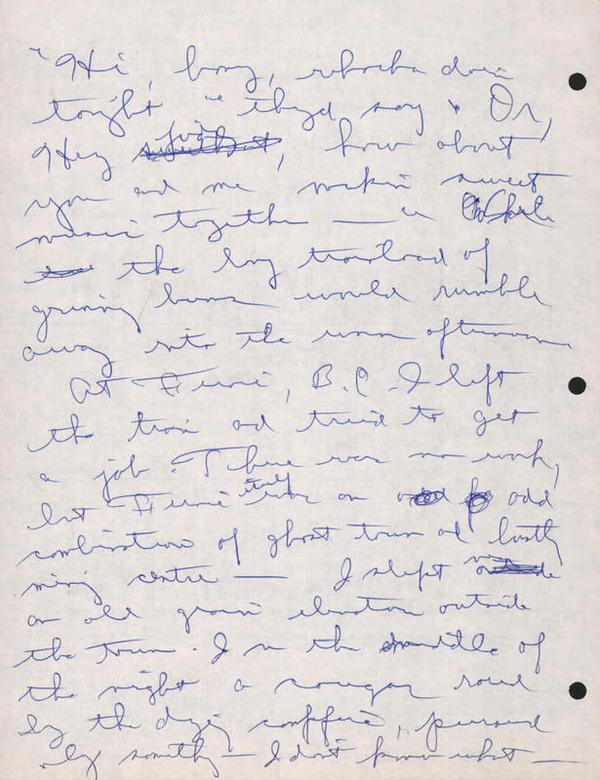 "Hi, boy, whatcha doin
tonight" they'd say. Or,
Hey, how about
you and me makin sweet
music together — " While
the long trainload of
grinning bums would rumble
away into the warm afternoon.
At Fernie, B.C. I left
the train and tried to get
a job. There was no work,
but Fernie itself was an odd
combination of ghost town and
mining centre — I slept in
an old grain elevator outside
the town. In the middle of
the night a cougar
by the dying campfire, pursued
by something — I don't know what —